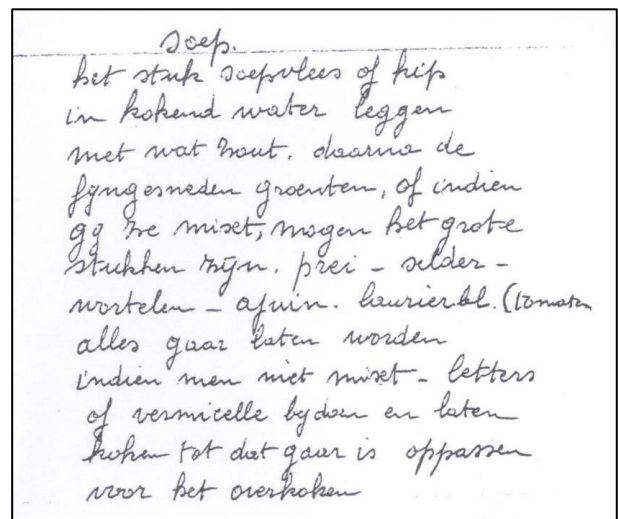 soep.
het stuk soepvlees of kip
in kokend water leggen
met wat zout. daarna de
fyngesneden groenten, of indien
gy ze mixet, mogen het grote
stukken zijn. prei - selder -
wortelen - ajuin. laurierbl. (tomaten
alles gaar laten worden
indien men niet mixet - letters
of vermicelle bydoen en laten
koken tot dat gaar is oppassen
voor het overkoken